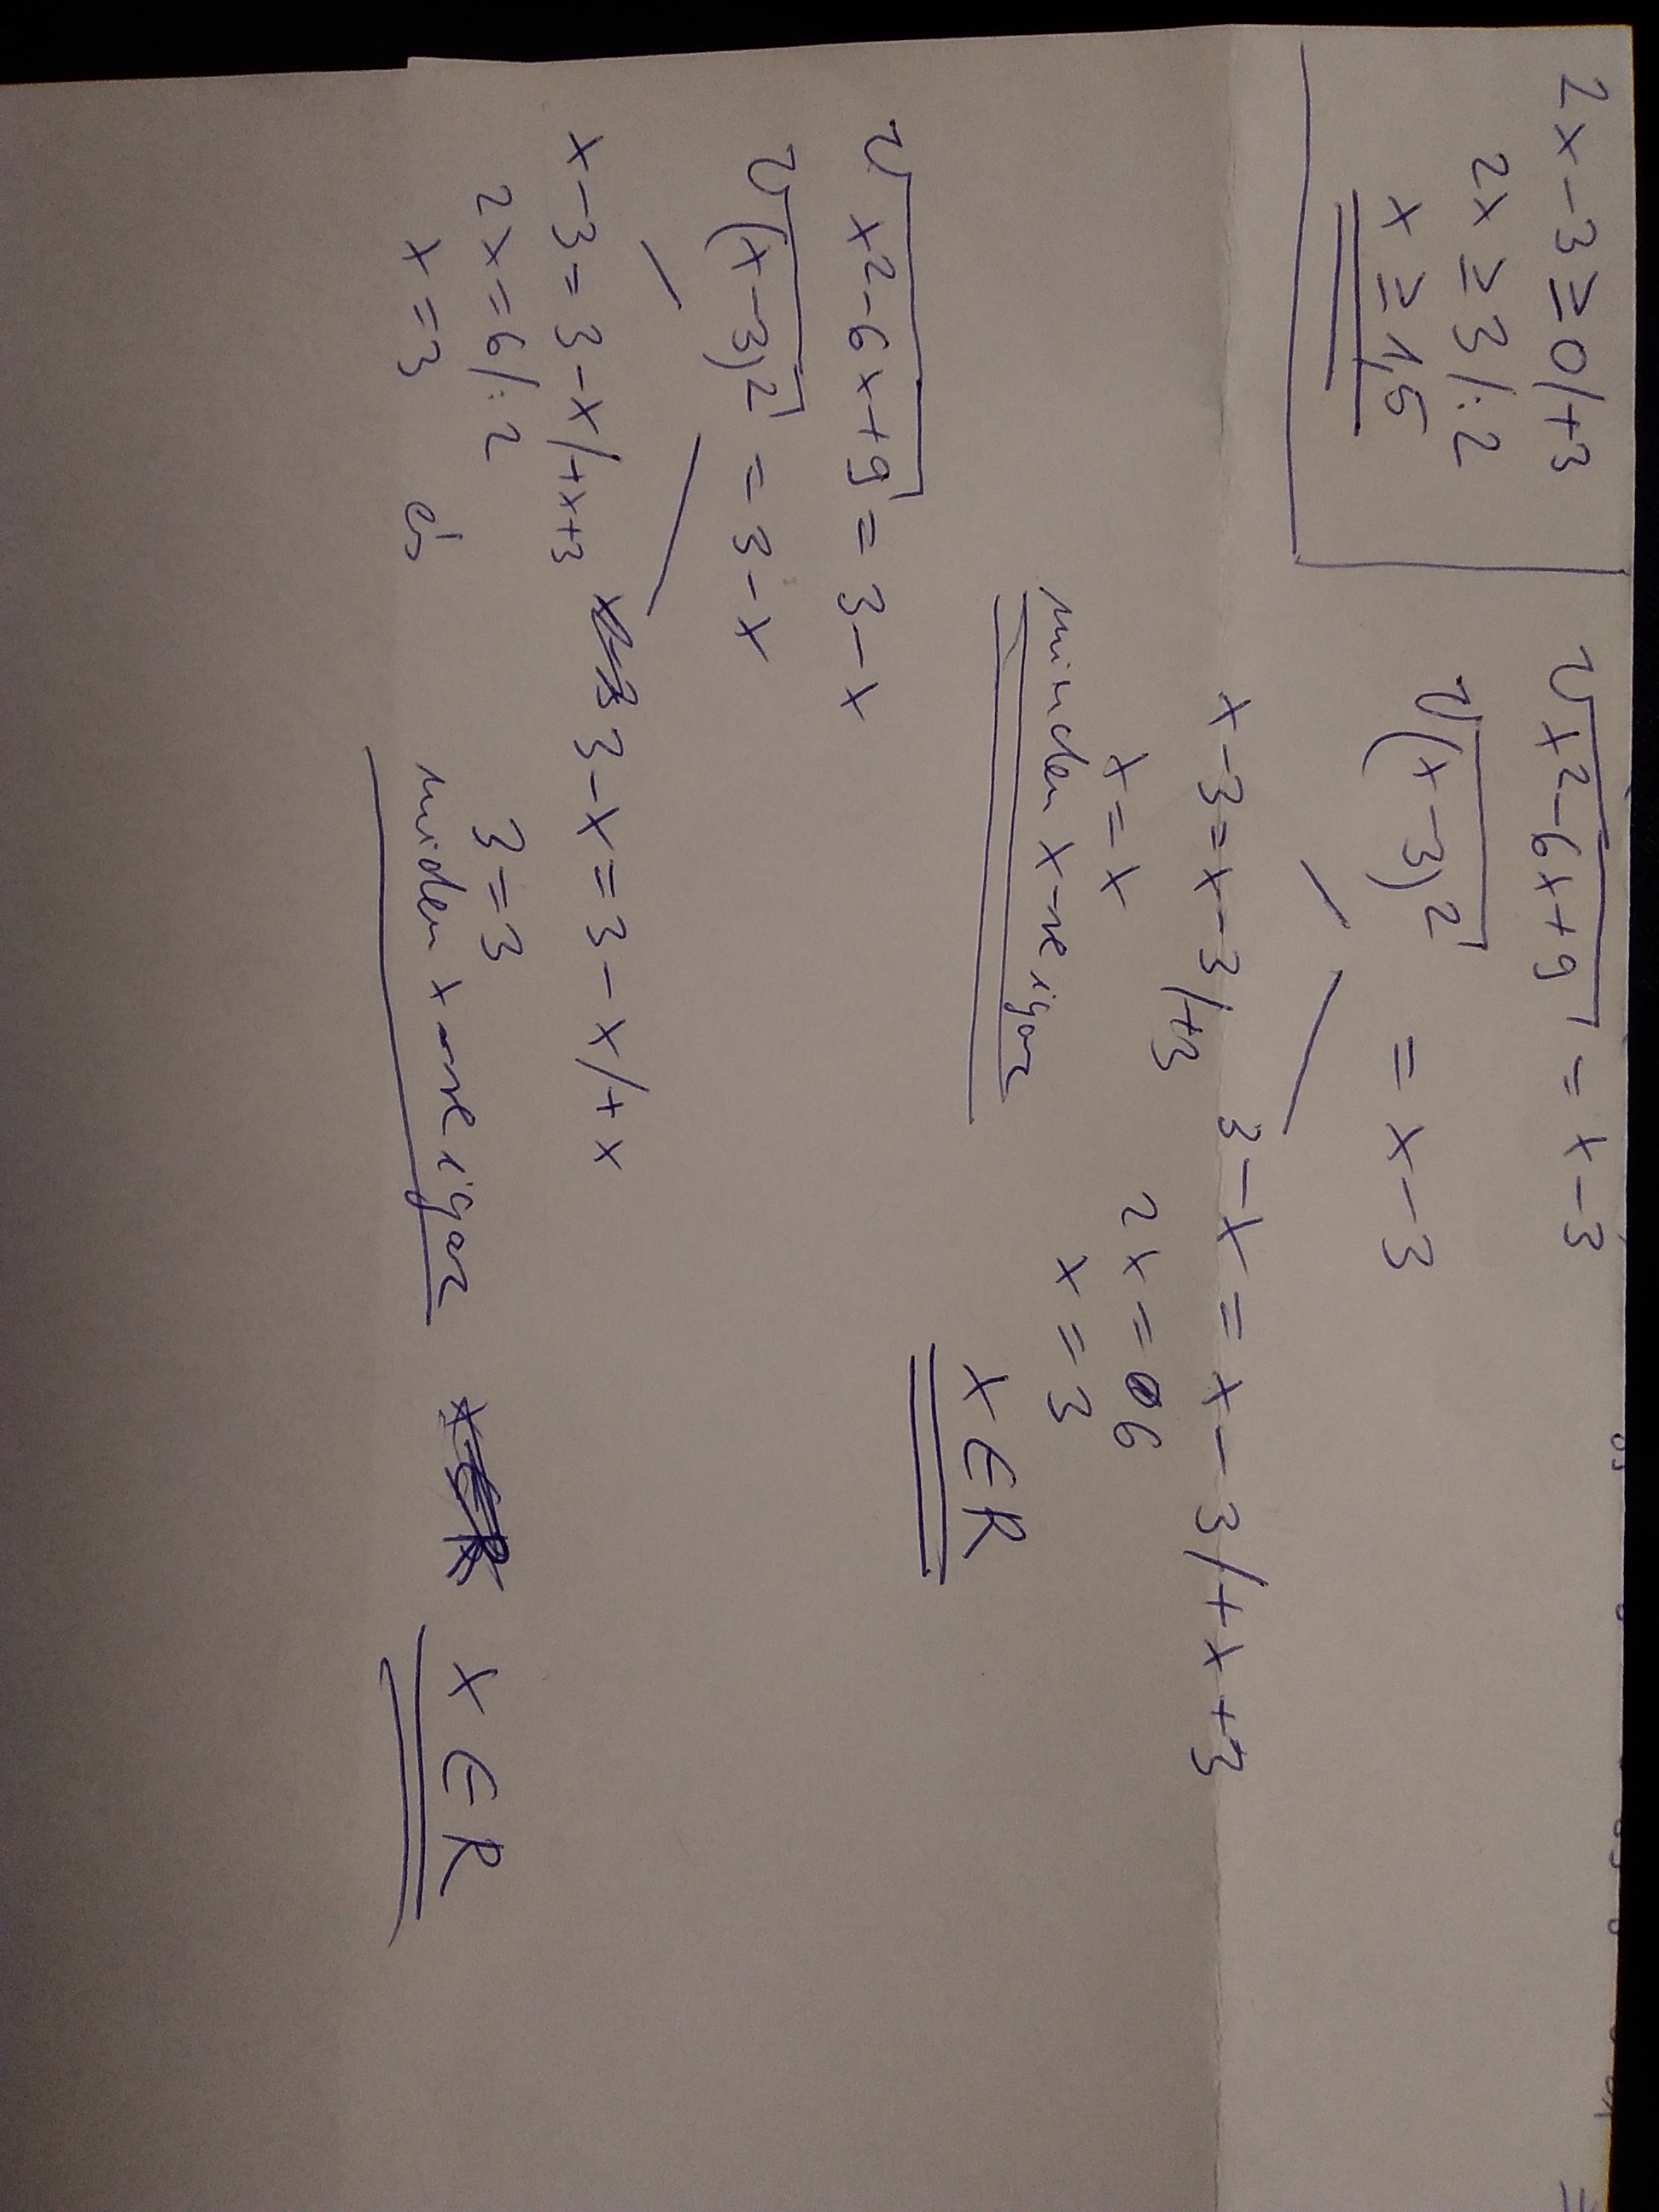 2x-3≥0/+3
2x≥3/:2
x≥1,5
√x²-6x+9 = x-3
√(x-3)² = x-3
x-3=x-3/+3
x=x
minden x-re igaz
3-x=x-3/+x+3
2x=6
x=3
x∈R
√x²-6x+9 = 3-x
√(x-3)² = 3-x
x-3=3-x/+x+3
2x=6/:2
x=3 és
3-x=3-x/+x
3=3
minden x-re igaz
x∈R